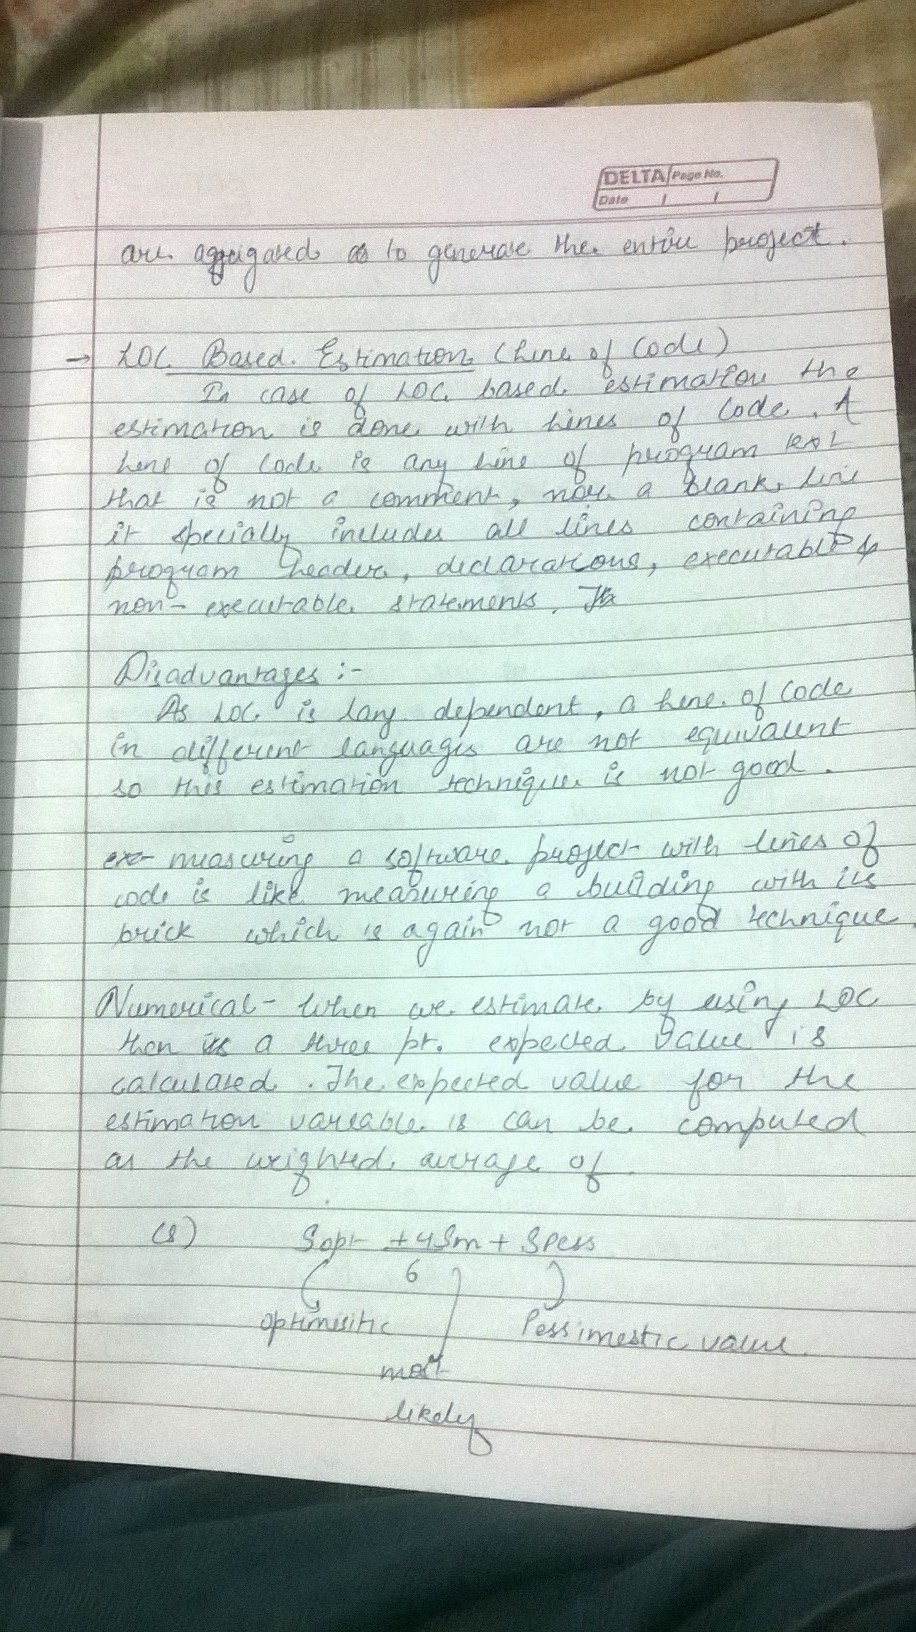 DELTA Page No.
Date / /
are aggrigared to generate the entire project.
→ LOC Based Estimation (Line of Code)
In case of LOC based estimation the
estimation is done with Lines of Code. A
Line of Code is any line of program text
that is not a comment, nor a blank line
it specially includes all lines containing
program header, declarations, executable &
non-executable statements.
Disadvantages :-
As LOC is lang dependent, a line of Code
in different languages are not equivalent
so this estimation technique is not good.
ex- measuring a software project with lines of
code is like measuring a building with its
brick which is again not a good technique
Numerical - When we estimate by using LOC
then a three pt. expected value is
calculated. The expected value for the
estimation variable is can be computed
as the weighted average of
(s) Sopt + 4Sm + Spess
6
optimisitic Pessimestic value
most
likely